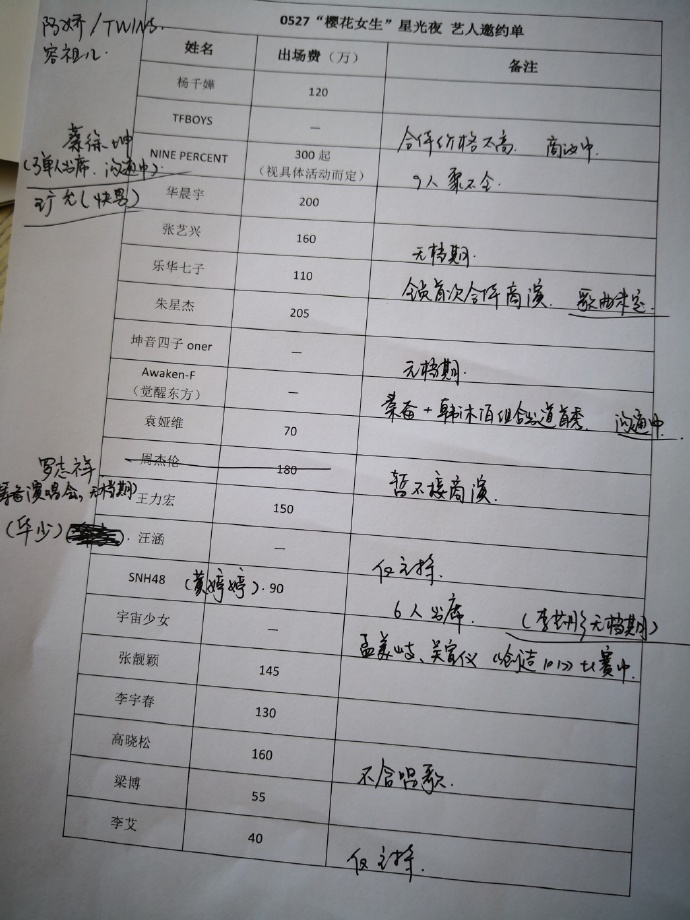 阿娇/TWINS.
容祖儿.
0527“樱花女生”星光夜 艺人邀约单
姓名 出场费（万） 备注
杨千嬅 120
TFBOYS — 合体价格不高. 商洽中.
蔡徐坤
(单人出席. 沟通中).
NINE PERCENT 300 起
（视具体活动而定） 9人聚不全.
(快男)
华晨宇 200
张艺兴 160 无档期.
乐华七子 110 全员首次合体商演. 歌曲未定.
朱星杰 205
坤音四子 oner — 无档期.
Awaken-F
（觉醒东方） — 秦奋+韩沐伯组合出道首秀. 沟通中.
袁娅维 70
罗志祥
演唱会，无档期)
周杰伦 180 暂不接商演.
王力宏 150
(华少)
汪涵 — 仅主持.
SNH48 (黄婷婷). 90 6人出席. (李艺彤无档期)
宇宙少女 — 孟美岐、吴宣仪《创造101》比赛中.
张靓颖 145
李宇春 130
高晓松 160 不含唱歌.
梁博 55
李艾 40 仅主持.